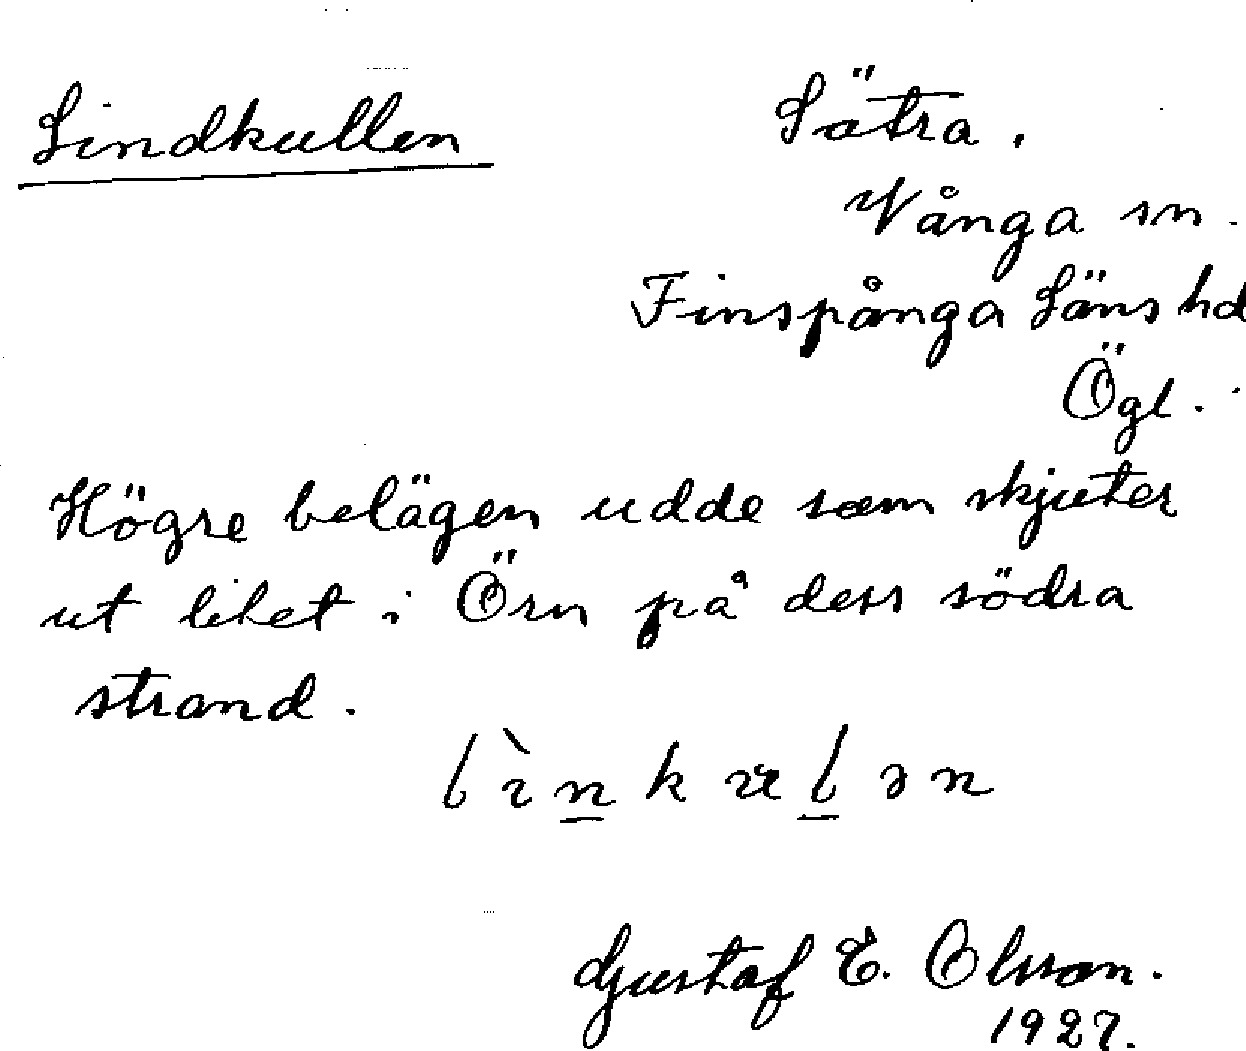 Lindkullen
Sätra.
Vånga sn.
Finspånga Läns hd
Ögl.
Högre belägen udde som skjuter
ut litet i Örn på dess södra
strand.
Gustaf E. Olsson.
1927.